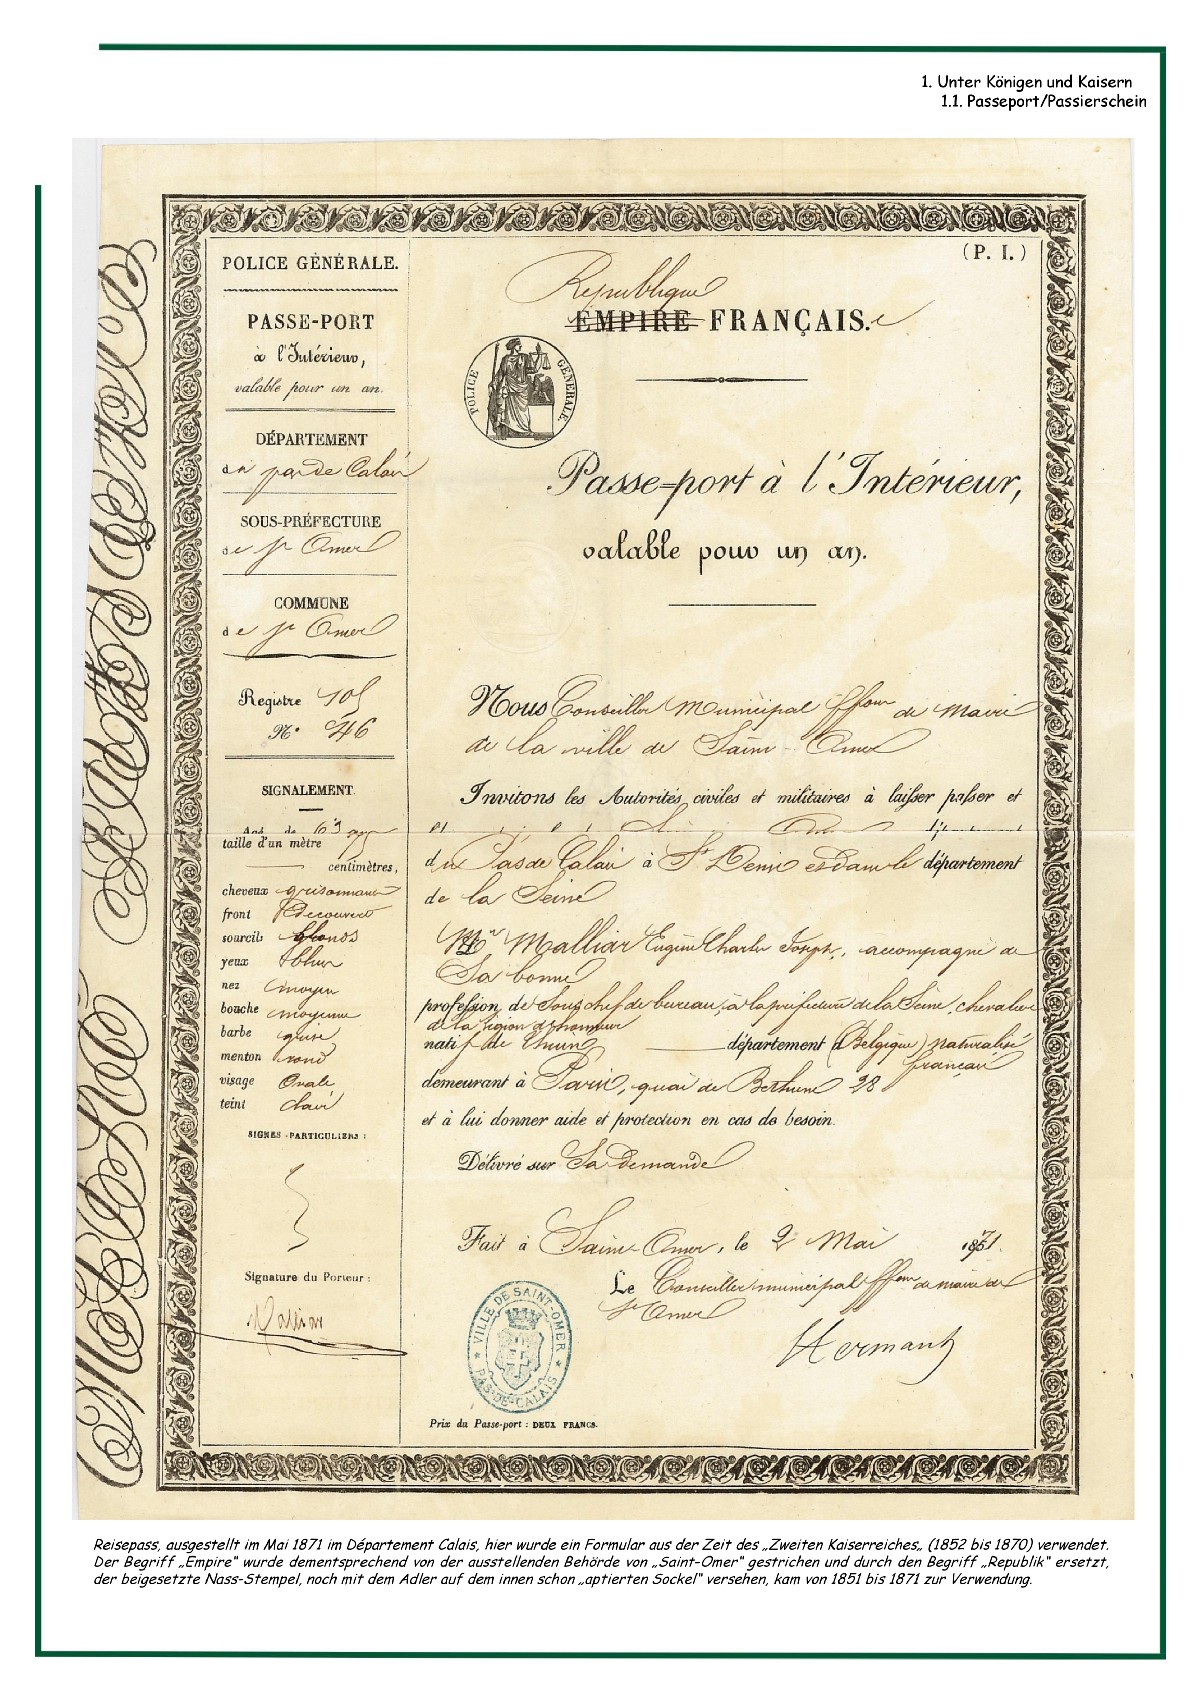 1. Unter Königen und Kaisern
1.1. Passeport/Passierschein
POLICE GÉNÉRALE.
PASSE-PORT
à l'Intérieur,
valable pour un an.
DÉPARTEMENT
du pas de Calais
SOUS-PRÉFECTURE
de St Omer
COMMUNE
de St Omer
Registre 105
N° 46
SIGNALEMENT
Agé de 63 ans
taille d'un mètre
centimètres,
cheveux grisonnants
front découvert
sourcils blonds
yeux bleus
nez moyen
bouche moyenne
barbe grise
menton rond
visage Ovale
teint clair
SIGNES PARTICULIERS :
Signature du Porteur :
Malliar
(P. I.)
République
EMPIRE FRANÇAIS.e
POLICE GÉNÉRALE.
Passe-port à l'Intérieur,
valable pour un an.
Nous Conseiller Municipal ffons de Maire
de la ville de Saint-Omer
Invitons les Autorités civiles et militaires à laisser passer et
du Pas de Calais à St Denis et dans le département
de la Seine
Mr Malliar Eugène Charles Joseph, accompagné de
Sa bonne
profession de Sous chef de bureau, à la préfecture de la Seine, chevalier
de la légion d'honneur
natif de département (Belgique) naturalisé
français
demeurant à Paris, quai de Bethune 28
et à lui donner aide et protection en cas de besoin.
Délivré sur Sa demande
Fait à Saint-Omer, le 2 Mai 1871.
Le Conseiller municipal ffons de maire de
St Omer
Hermant
VILLE DE SAINT-OMER
PAS-DE-CALAIS
Prix du Passe-port : DEUX FRANCS.
Reisepass, ausgestellt im Mai 1871 im Département Calais, hier wurde ein Formular aus der Zeit des „Zweiten Kaiserreiches„ (1852 bis 1870) verwendet.
Der Begriff „Empire“ wurde dementsprechend von der ausstellenden Behörde von „Saint-Omer“ gestrichen und durch den Begriff „Republik“ ersetzt,
der beigesetzte Nass-Stempel, noch mit dem Adler auf dem innen schon „aptierten Sockel“ versehen, kam von 1851 bis 1871 zur Verwendung.